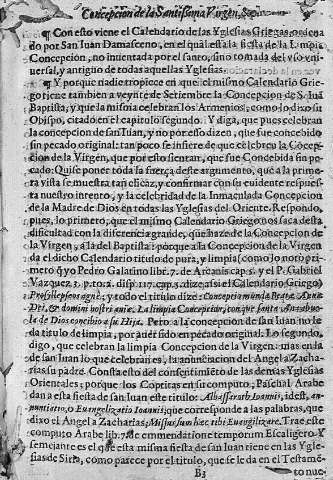 Concepcion de la Santissima Virgen,
¶ Con esto viene el Calendario de las Yglesias Griegas ordena
do por San Iuan Damasceno, en el qual està la fiesta de la Limpia
Concepcion, no inuentada por el santo, sino tomada del vso vni-
uersal, y antiguo de todas aquellas Yglesias.
¶ Y porque nadie tropiece en que el mismo Calendario Grie-
go tiene tambien a veynte de Setiembre la Concepcion de S. Iuã
Baptista, y que la misma celebran los Armenios, como lo dize su
Obispo, citado en el capitulo segundo. Y diga, que pues celebran
la concepcion de san Iuan, y no por esso dizen, que fue concebido
sin pecado original: tampoco se infiere de que celebren la Cõcep-
cion de la Virgen, que por esso sientan, que fue Concebida sin pe-
cado: Quise poner toda la fuerça deste argumento, que a la prime-
ra vista se muestra tan eficaz, y confirmar con su euidente respues-
ta nuestro intento, y la celebridad de la Inmaculada Concepcion
de la Madre de Dios en todas las Yglesias del Oriente. Respondo,
pues, lo primero, que el mismo Calendario Griego nos saca desta
dificultad con la diferencia grande, que haze de la Concepcion de
la Virgen, a la del Baptista: porque a la Concepcion de la Virgen
da el dicho Calendario titulo de pura, y limpia (como lo notò pri
mero q̃ yo Pedro Galatino libr. 7. de Arcanis cap. 5. y el P. Gabriel
Vazquez 3. p. to. 2. disp. 117. cap. 5. dize assi el Calendario Griego)
y todo el titulo dize: Concepcion munda
Dei, & domini nostri La limpia Concepcion, con que santa Ana abue
la de Dios concibio a su Hija. Pero a la concepcion de San Iuan no le
da titulo de limpia, por auer sido en pecado original. Lo segundo,
digo, que celebran la limpia Concepcion de la Virgen: mas en la de
san Iuan lo que celebran es, la anunciacion del Angel a Zacha-
rias su padre. Consta esto del consentimiẽto de las demas Yglesias
Orientales; porque los Coptitas en su computo, Paschal, Arabe
dan a esta fiesta de san Iuan este titulo: idest, an-
nuntiatio, ò Euangelizatio Ioannis; que corresponde a las palabras, que
dixo el Angel a Zacharias; Missus sum hæc tibi Euangelizare. Trae este
computo Arabe lib. 7. de emmendatione temporum Escaligero. Y
semejante es el que esta misma fiesta de san Iuan tiene en las Ygle
sias de Siria, como parece por el titulo, que se le da en el Testamẽ-
B3 to nue-